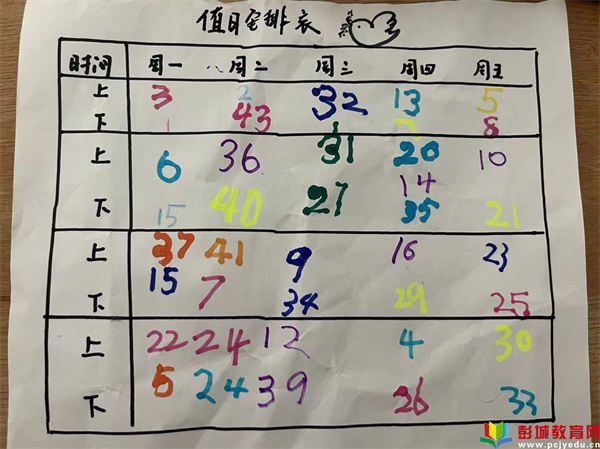 值日安排表
时间 周一 周二 周三 周四 周五
上 3 2 32 13 5
下 1 43 8
上 6 36 31 20 10
14
下 15 40 27 35 21
上 37 41 9 16 23
下 15 7 34 29 25
上 22 24 12 4 30
下 5 24 39 26 33
彭城教育网
www.pcjyedu.cn